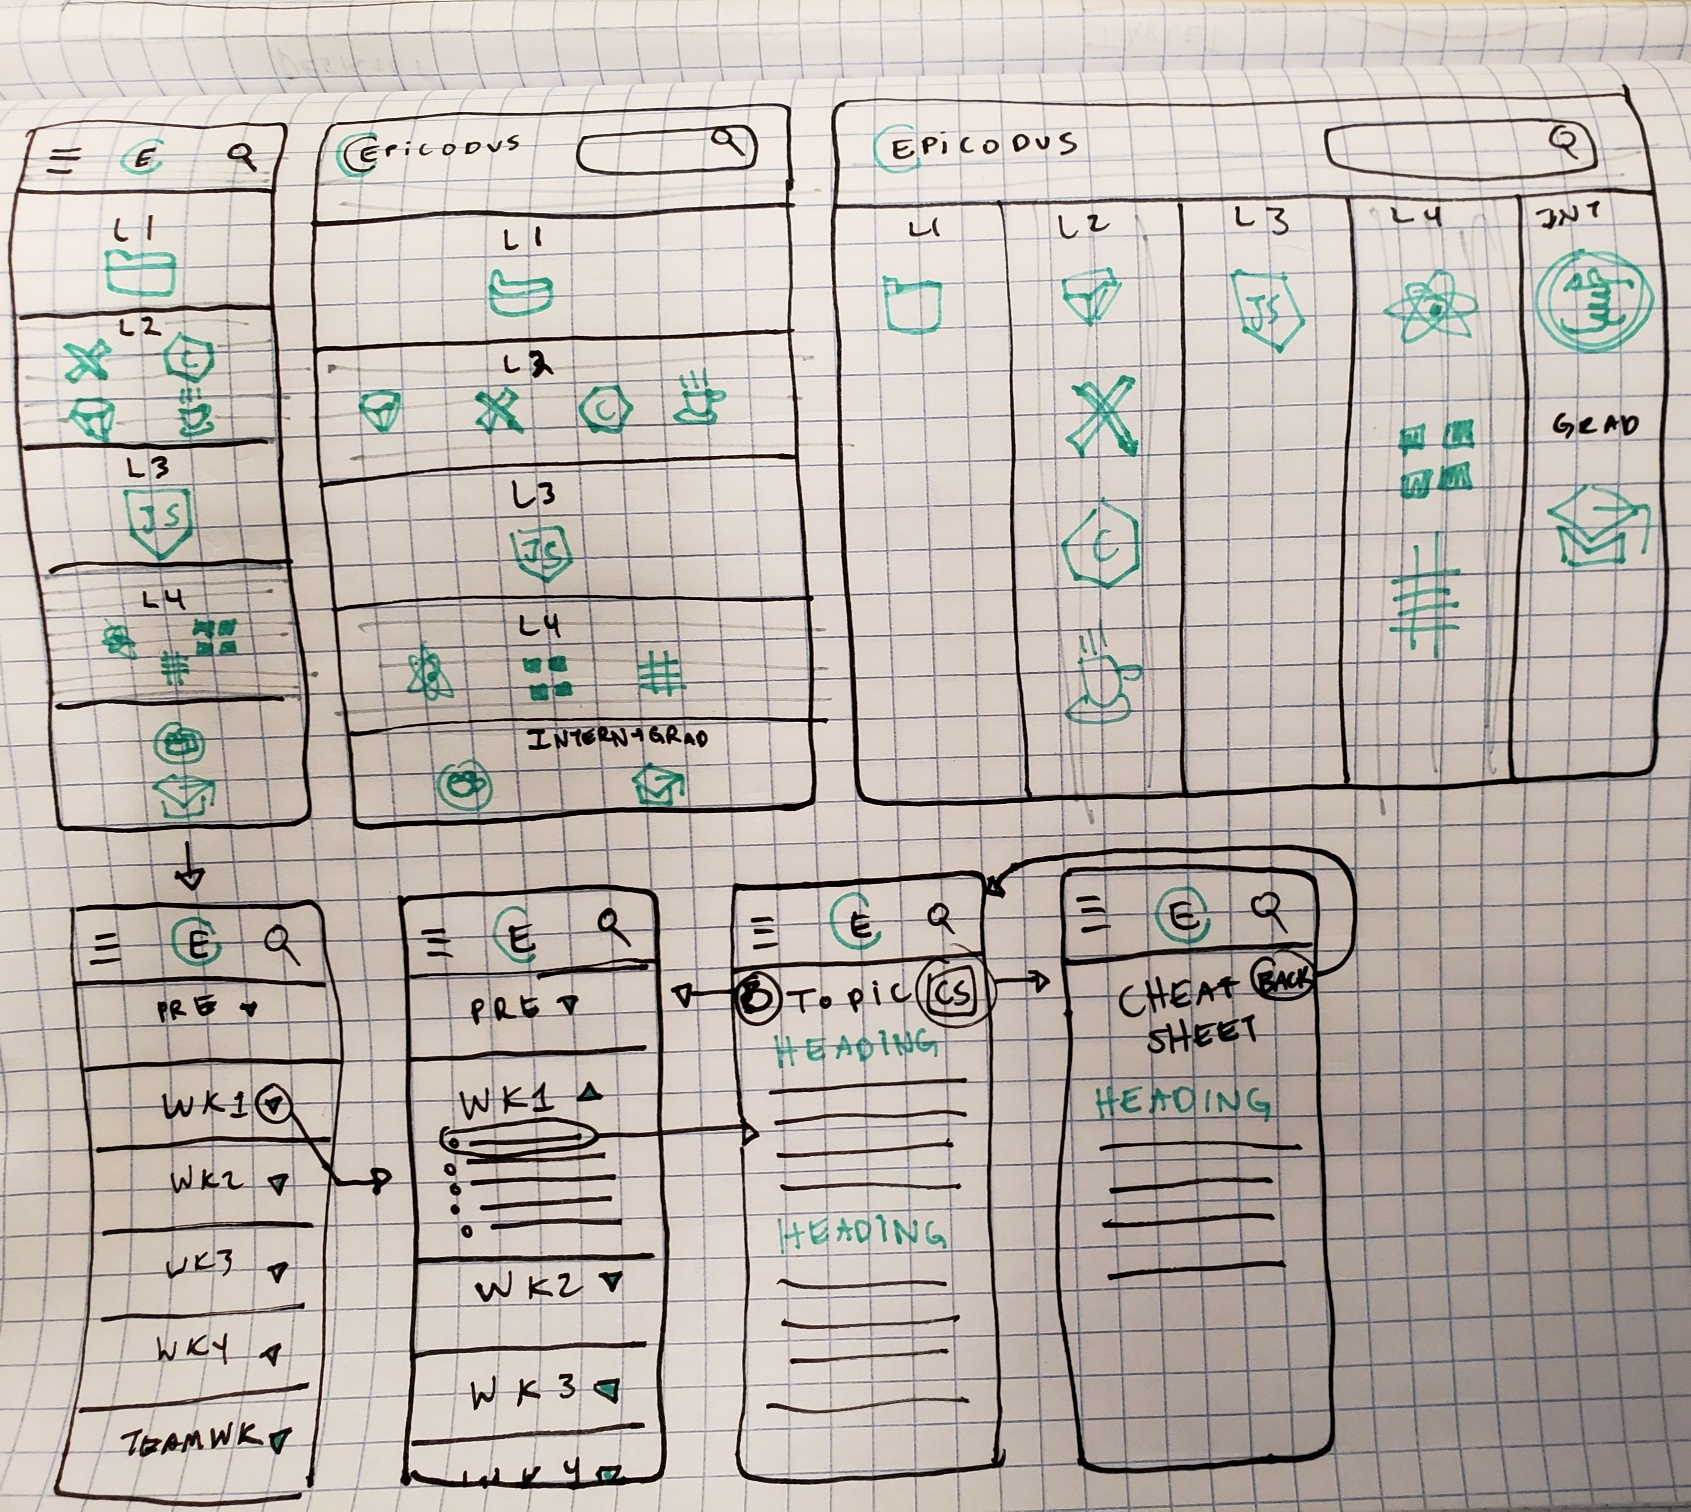 E
L1
L2
C
L3
JS
L4
EPICODUS
L1
L2
C
L3
JS
L4
INTERN+GRAD
EPICODUS
L1
L2
L3
L4
INT
JS
C
GRAD
E
PRE
WK1
WK2
WK3
WK4
TEAMWK
E
PRE
WK1
WK2
WK3
WK4
E
B TOPIC CS
HEADING
HEADING
E
CHEAT BACK
SHEET
HEADING